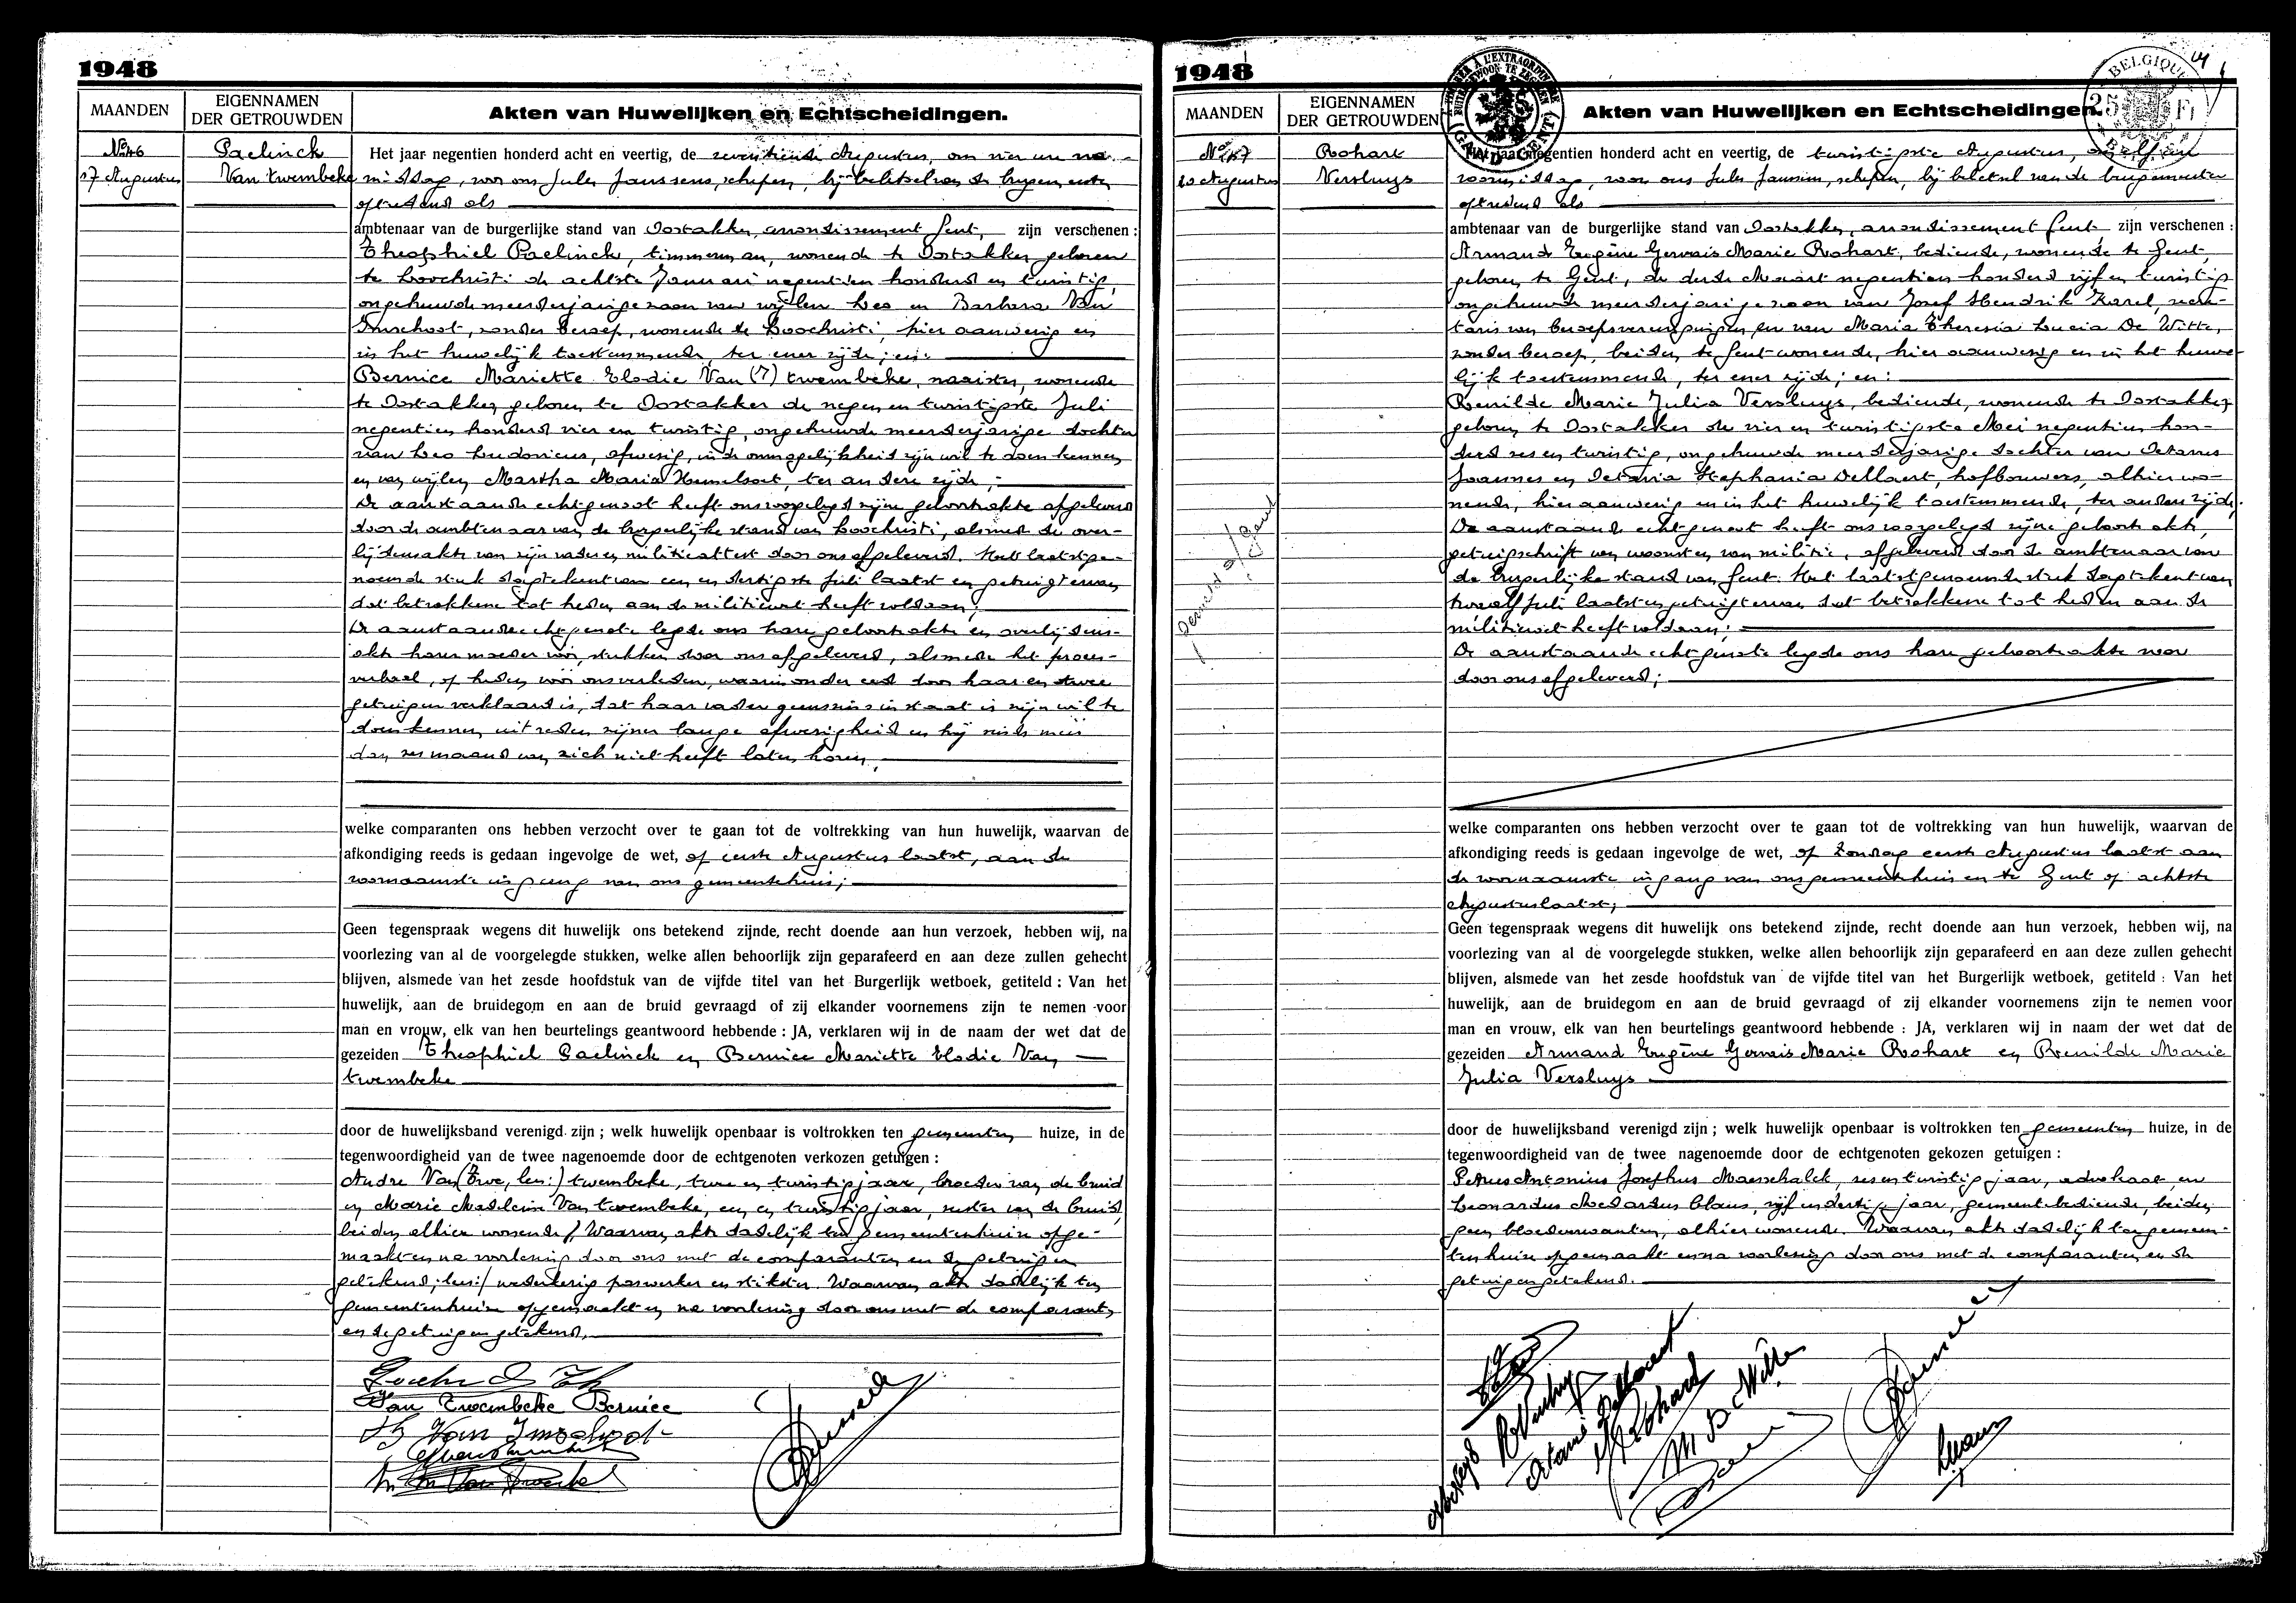 1948
MAANDEN
EIGENNAMEN
DER GETROUWDEN
Akten van Huwelijken en Echtscheidingen.
No 46
17 Augustus
Paelinck
Van Twembeke
Het jaar negentien honderd acht en veertig, de zeventiende Augustus, om vier ure na-
middag, voor ons Jules Janssens, schepen, bij belet van de burgemeester
optredend als
ambtenaar van de burgerlijke stand van Oostakker, arrondissement Gent, zijn verschenen :
Theophiel Paelinck, timmerman, wonende te Oostakker, geboren
te Loochristi de achtste Januari negentien honderd en twintig,
ongehuwde meerderjarige zoon van wijlen Leo en Barbara Van
Imschoot, zonder beroep, wonende te Loochristi, hier aanwezig en
in het huwelijk toestemmende, ter ener zijde; en:
Bernice Mariette Elodie Van (7) twembeke, naaister, wonende
te Oostakker, geboren te Oostakker de negen en twintigste Juli
negentien honderd vier en twintig, ongehuwde meerderjarige dochter
van Leo Ludovicus, afwezig, in de onmogelijkheid zijn wil te doen kennen,
en van wijlen Martha Maria Hemelsoet, ter andere zijde;
De aanstaande echtgenoot heeft ons voorgelegd zijne geboorteakte afgeleverd
door de ambtenaar van de burgerlijke stand van Loochristi, alsmede de over-
lijdensakte van zijn vader en militieattest door ons afgeleverd. Het laatstge-
noemde stuk dagtekent van een en dertigste Juli laatst en getuigt ervan
dat betrokkene tot heden aan de militiewet heeft voldaan;
De aanstaande echtgenote legde ons hare geboorteakte en overlijdens-
akte harer moeder voor, stukken door ons afgeleverd, alsmede het proces-
verbaal, op heden voor ons verleden, waarin onder eed door haar en twee
getuigen verklaard is, dat haar vader geenszins in staat is zijn wil te
doen kennen uit reden zijner lange afwezigheid en hij sinds meer
dan zes maand van zich niet heeft laten horen;
welke comparanten ons hebben verzocht over te gaan tot de voltrekking van hun huwelijk, waarvan de
afkondiging reeds is gedaan ingevolge de wet, op eerste Augustus laatst, aan de
voornaamste ingang van ons gemeentehuis;
Geen tegenspraak wegens dit huwelijk ons betekend zijnde, recht doende aan hun verzoek, hebben wij, na
voorlezing van al de voorgelegde stukken, welke allen behoorlijk zijn geparafeerd en aan deze zullen gehecht
blijven, alsmede van het zesde hoofdstuk van de vijfde titel van het Burgerlijk wetboek, getiteld : Van het
huwelijk, aan de bruidegom en aan de bruid gevraagd of zij elkander voornemens zijn te nemen voor
man en vrouw, elk van hen beurtelings geantwoord hebbende : JA, verklaren wij in de naam der wet dat de
gezeiden Theophiel Paelinck en Bernice Mariette Elodie Van
twembeke
door de huwelijksband verenigd zijn ; welk huwelijk openbaar is voltrokken ten gemeenten huize, in de
tegenwoordigheid van de twee nagenoemde door de echtgenoten verkozen getuigen :
Andre Van (Twe, lees:) twembeke, twee en twintig jaar, broeder van de bruid
en Marie Madeleine Van twembeke, een en twintig jaar, zuster van de bruid,
beiden alhier wonende / Waarvan akte dadelijk ten gemeentenhuize opge-
maakt en na voorlezing door ons met de comparanten en de getuigen
getekend; lees:/ wederkerig paswerker en stikster. Waarvan akte dadelijk ten
gemeentenhuize opgemaakt en na voorlezing door ons met de comparanten
en de getuigen getekend.
Van Twembeke Bernice
Van Imschoot
1948
MAANDEN
EIGENNAMEN
DER GETROUWDEN
Akten van Huwelijken en Echtscheidingen.
BELGIQUE
25 Fr
GAND GENT
No 47
20 Augustus
Rohart
Versluys
Het jaar negentien honderd acht en veertig, de twintigste Augustus, om elf ure
voormiddag, voor ons Jules Janssens, schepen, bij beletsel van de burgemeester
optredend als
ambtenaar van de burgerlijke stand van Oostakker, arrondissement Gent, zijn verschenen :
Armand Eugène Gervais Marie Rohart, bediende, wonende te Gent,
geboren te Gent, de derde Maart negentien honderd vijf en twintig
ongehuwde meerderjarige zoon van Jozef Hendrik Karel, secre-
taris van beroepsverenigingen en van Maria Theresia Lucia De Witte,
zonder beroep, beiden te Gent wonende, hier aanwezig en in het huwe-
lijk toestemmende, ter ener zijde; en:
Reinilde Marie Julia Versluys, bediende, wonende te Oostakker,
geboren te Oostakker de vier en twintigste Mei negentien hon-
derd zes en twintig, ongehuwde meerderjarige dochter van Octavus
Joannes en Octavia Stephania Dellaert, hofbouwers, alhier wo-
nende, hier aanwezig en in het huwelijk toestemmende, ter andere zijde;
De aanstaande echtgenoot heeft ons voorgelegd zijne geboorteakte,
getuigschrift van woonst en van militie, afgeleverd door de ambtenaar van
de burgerlijke stand van Gent. Het laatstgenoemde stuk dagtekent van
twaalf Juli laatst en getuigt ervan dat betrokkene tot heden aan de
militiewet heeft voldaan;
De aanstaande echtgenote legde ons hare geboorteakte voor
door ons afgeleverd;
welke comparanten ons hebben verzocht over te gaan tot de voltrekking van hun huwelijk, waarvan de
afkondiging reeds is gedaan ingevolge de wet, op Zondag eerste Augustus laatst aan
de voornaamste ingang van ons gemeentehuis en te Gent op achtste
Augustus laatst;
Geen tegenspraak wegens dit huwelijk ons betekend zijnde, recht doende aan hun verzoek, hebben wij, na
voorlezing van al de voorgelegde stukken, welke allen behoorlijk zijn geparafeerd en aan deze zullen gehecht
blijven, alsmede van het zesde hoofdstuk van de vijfde titel van het Burgerlijk wetboek, getiteld : Van het
huwelijk, aan de bruidegom en aan de bruid gevraagd of zij elkander voornemens zijn te nemen voor
man en vrouw, elk van hen beurtelings geantwoord hebbende : JA, verklaren wij in naam der wet dat de
gezeiden Armand Eugène Gervais Marie Rohart en Reinilde Marie
Julia Versluys
door de huwelijksband verenigd zijn ; welk huwelijk openbaar is voltrokken ten gemeenten huize, in de
tegenwoordigheid van de twee nagenoemde door de echtgenoten gekozen getuigen :
Petrus Antonius Josephus Maeschalck, zes en twintig jaar, advokaat en
Leonardus Medardus Claus, vijf en dertig jaar, gemeentebediende, beiden
geen bloedverwanten, alhier wonende. Waarvan akte dadelijk ten gemeen-
tenhuize opgemaakt en na voorlezing door ons met de comparanten en de
getuigen getekend.